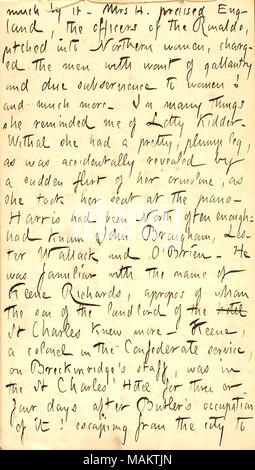 much by it. Mrs H. praised Eng-
land, the officers of the Rinaldo,
pitched into Northern women, charg-
ed the men with want of gallantry
and due subservience to women!
and much more. In many things
she reminded me of Lotty Kidder.
Withal she had a pretty, plump leg,
as was accidentally revealed by
a sudden flirt of her crinoline, as
she took her seat at the piano.
Harris had been North often enough
had known John Brougham, Les-
ter Wallack and O'Brien. He
was familiar with the name of
Keene Richards, apropos of whom
the son of the landlord of the Hotel
St Charles knew more. Keene,
a colonel in the Confederate service,
on Breckinridge's staff, was in
the St Charles' Hotel for three or
four days after Butler's occupation
of it! escaping from the city to
alamy
Image ID: MAKTJN
www.alamy.com